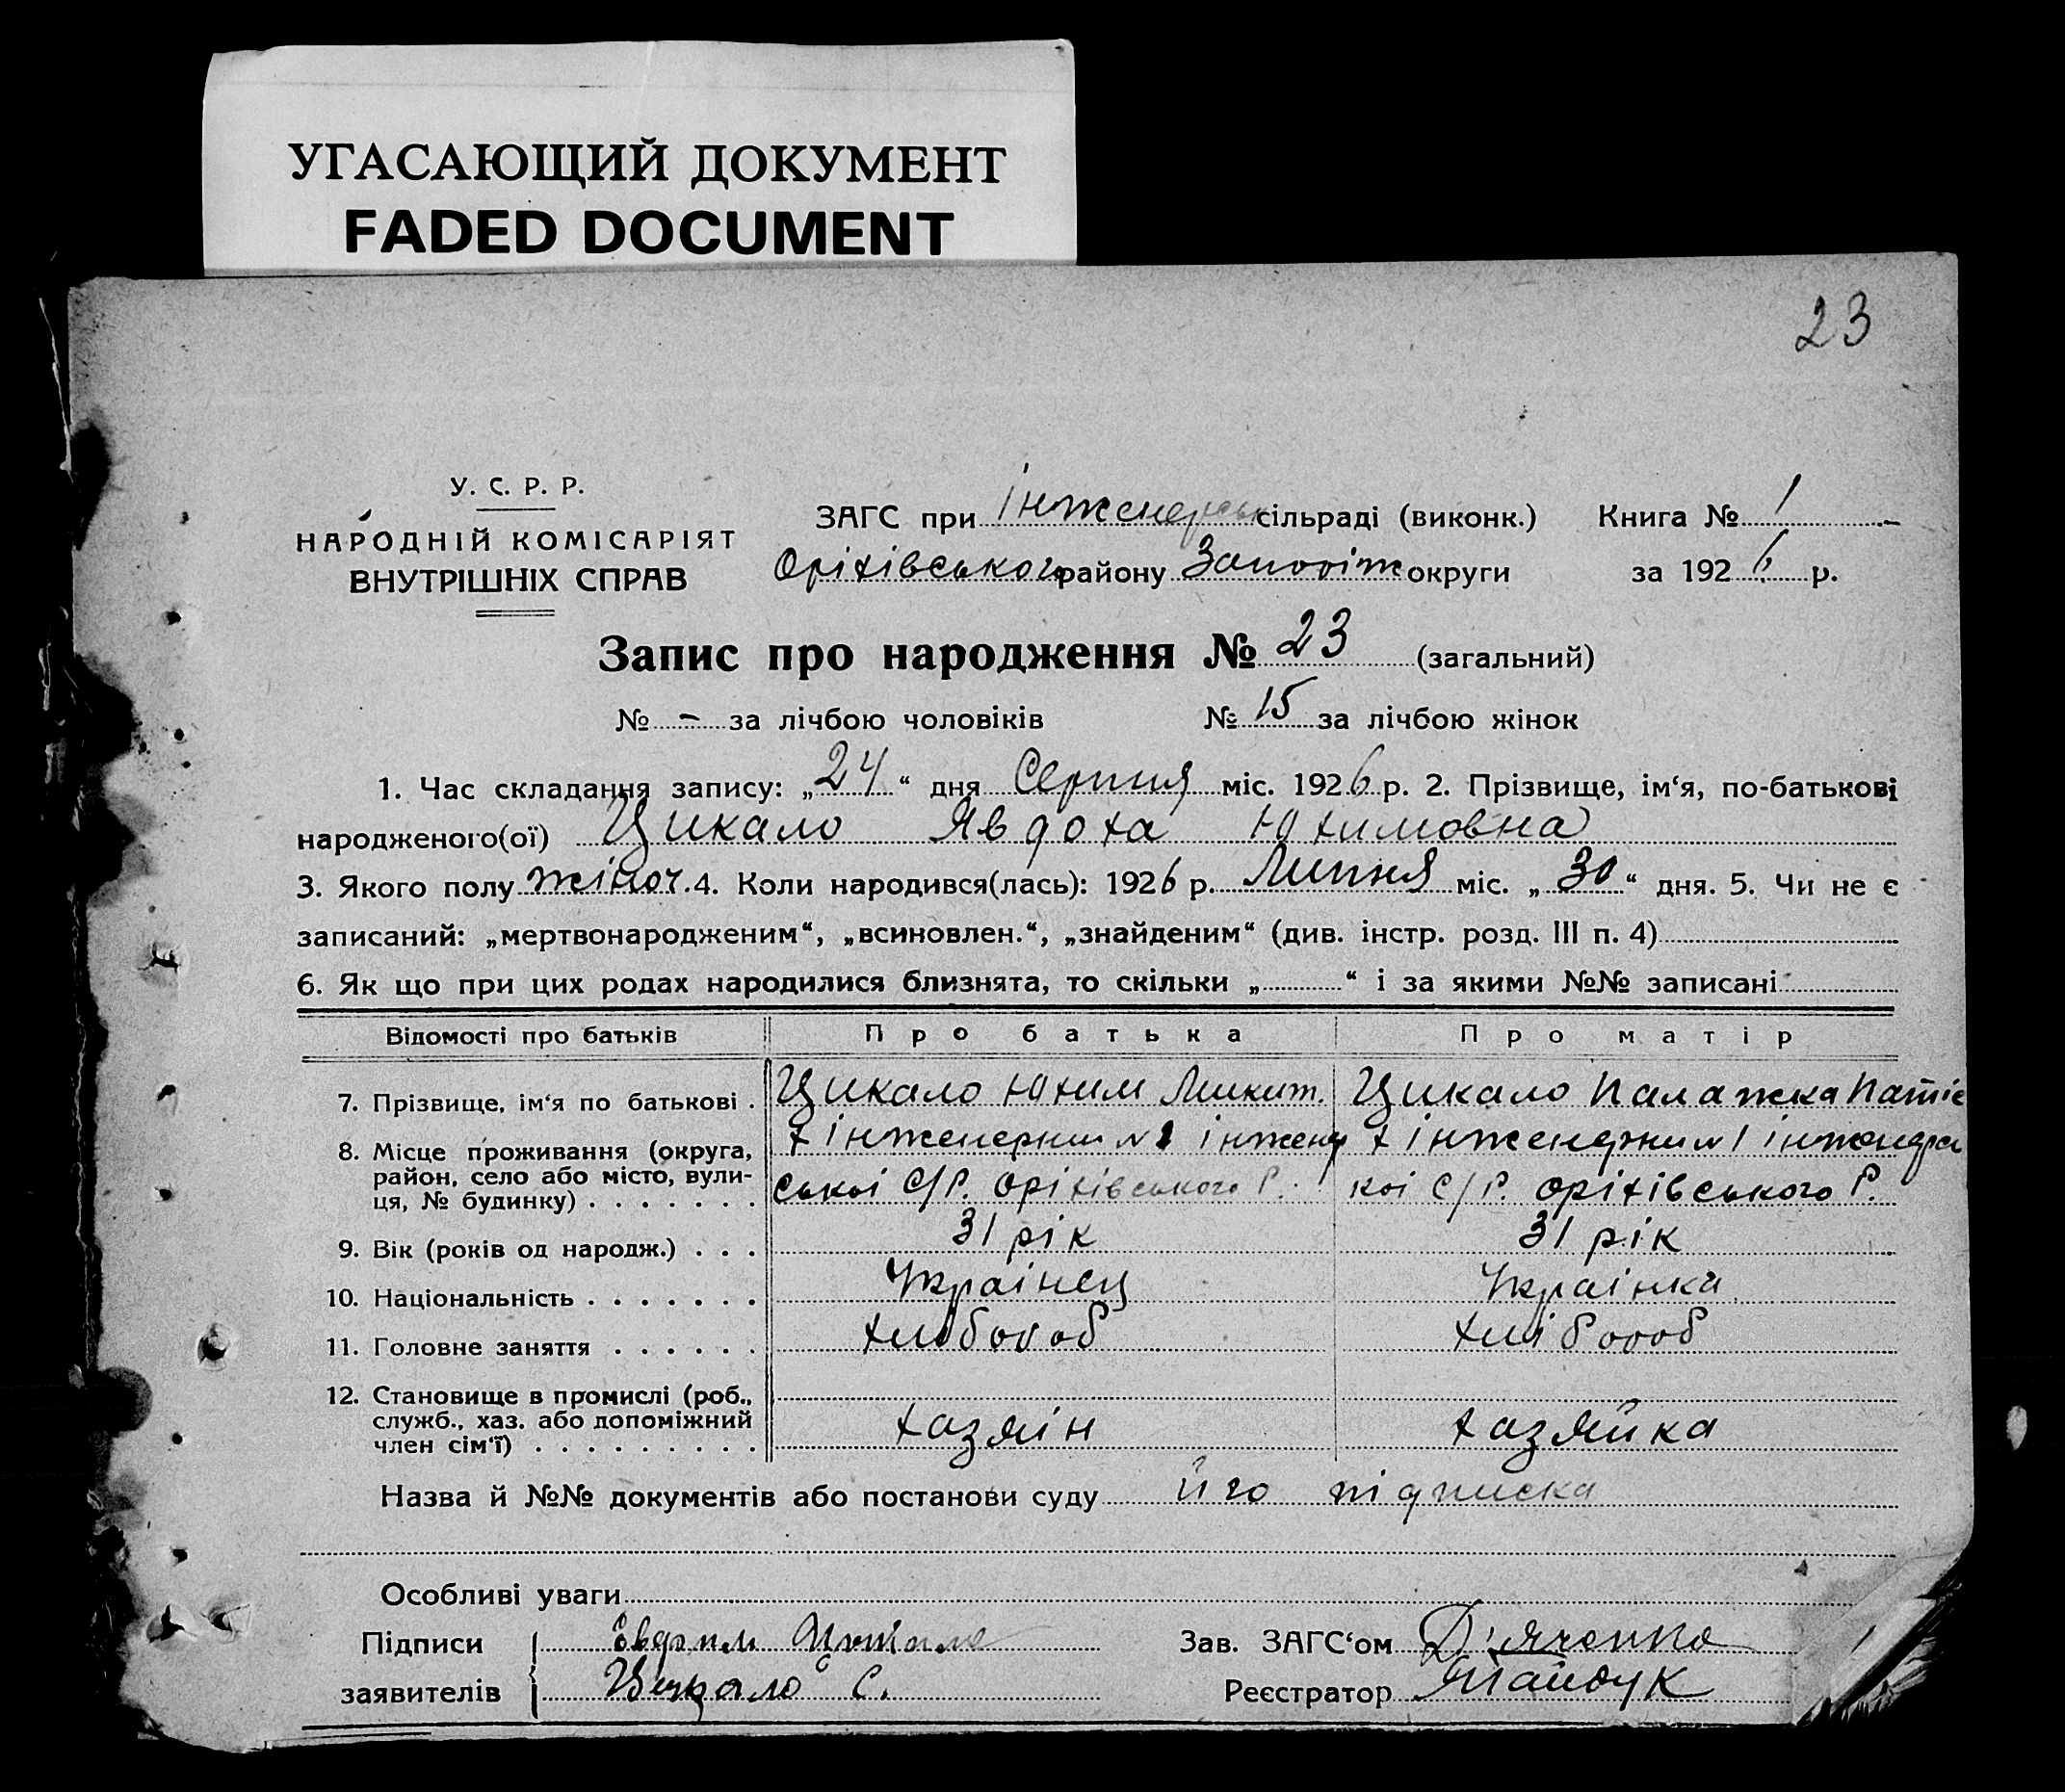 УГАСАЮЩИЙ ДОКУМЕНТ
FADED DOCUMENT
23
У. С. Р. Р.
НАРОДНІЙ КОМІСАРІЯТ
ВНУТРІШНІХ СПРАВ
ЗАГС при Інженерськ сільраді (виконк.) Книга № 1
Оріхівського району Запоріж округи за 1926 р.
Запис про народження № 23 (загальний)
№ - за лічбою чоловіків № 15 за лічбою жінок
1. Час складання запису: „24“ дня Серпня міс. 1926 р. 2. Прізвище, ім‘я, по-батькові
народженого(ої) Цикало Явдоха Юхимовна
3. Якого полу жіноч. 4. Коли народився(лась): 1926 р. Липня міс. „30“ дня. 5. Чи не є
записаний: „мертвонародженим“, „всиновлен.“, „знайденим“ (див. інстр. розд. III п. 4)
6. Як що при цих родах народилися близнята, то скільки „ “ і за якими №№ записані
Відомості про батьків Про батька Про матір
7. Прізвище, ім‘я по батькові . Цикало Юхим Микит. Цикало Палажка
8. Місце проживання (округа, район, село або місто, вулиця, № будинку) х Інженерний №1 Інженер
ської С/Р. Оріхівського Р. х Інженерний №1
кої С/Р. Оріхівського Р.
9. Вік (років од народж.) . . . 31 рік 31 рік
10. Національність . . . . . . . Українец Українка
11. Головне заняття . . . . . . хлібороб хлібороб
12. Становище в промислі (роб., служб., хаз. або допоміжний член сім‘ї) . . . . . . . . . хазяїн хазяйка
Назва й №№ документів або постанови суду його підписка
Особливі уваги
Підписи заявителів
Цикало С.
Зав. ЗАГС‘ом Д'яченко
Реєстратор